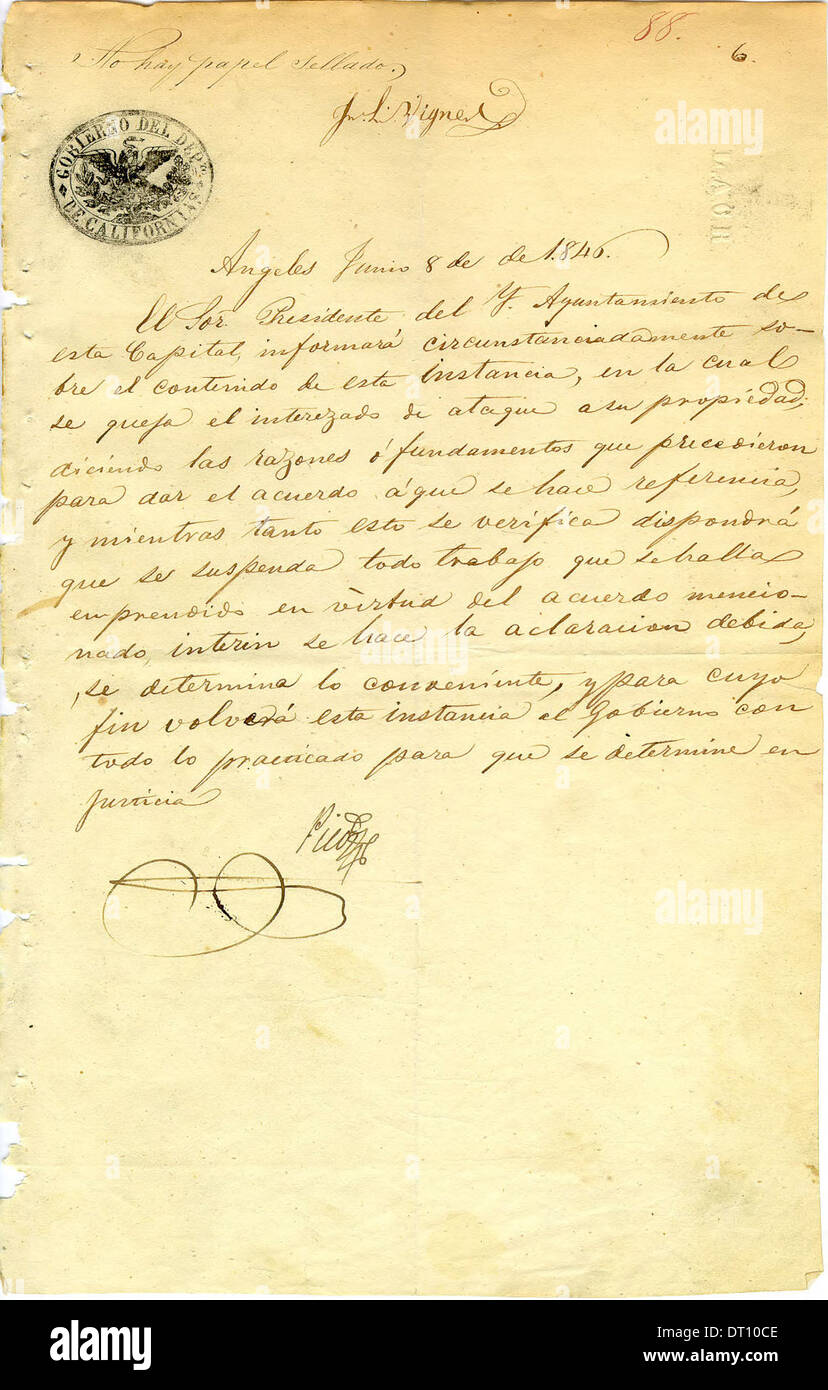 88.
6.
No hay papel sellado.
Jn. L. Vignes
GOBIERNO DEL DEPTO.
DE CALIFORNIAS
Angeles Junio 8 de de 1846.
El Sor. Presidente del Y. Ayuntamiento de
esta Capital, informará circunstanciadamente so-
bre el contenido de esta instancia, en la cual
se queja el interezado de ataque a su propiedad,
diciendo las razones ó fundamentos que precedieron
para dar el acuerdo á que se hace referencia,
y mientras tanto esto se verifica dispondrá
que se suspenda todo trabajo que se halla
emprendido en virtud del acuerdo mencio-
nado, interin se hace la aclaracion debida,
, se determina lo conveniente, y para cuyo
fin volverá esta instancia al Gobierno con
todo lo practicado para que se determine en
justicia
Pico
alamy
alamy
alamy
alamy
alamy
alamy
Image ID: DT10CE
www.alamy.com